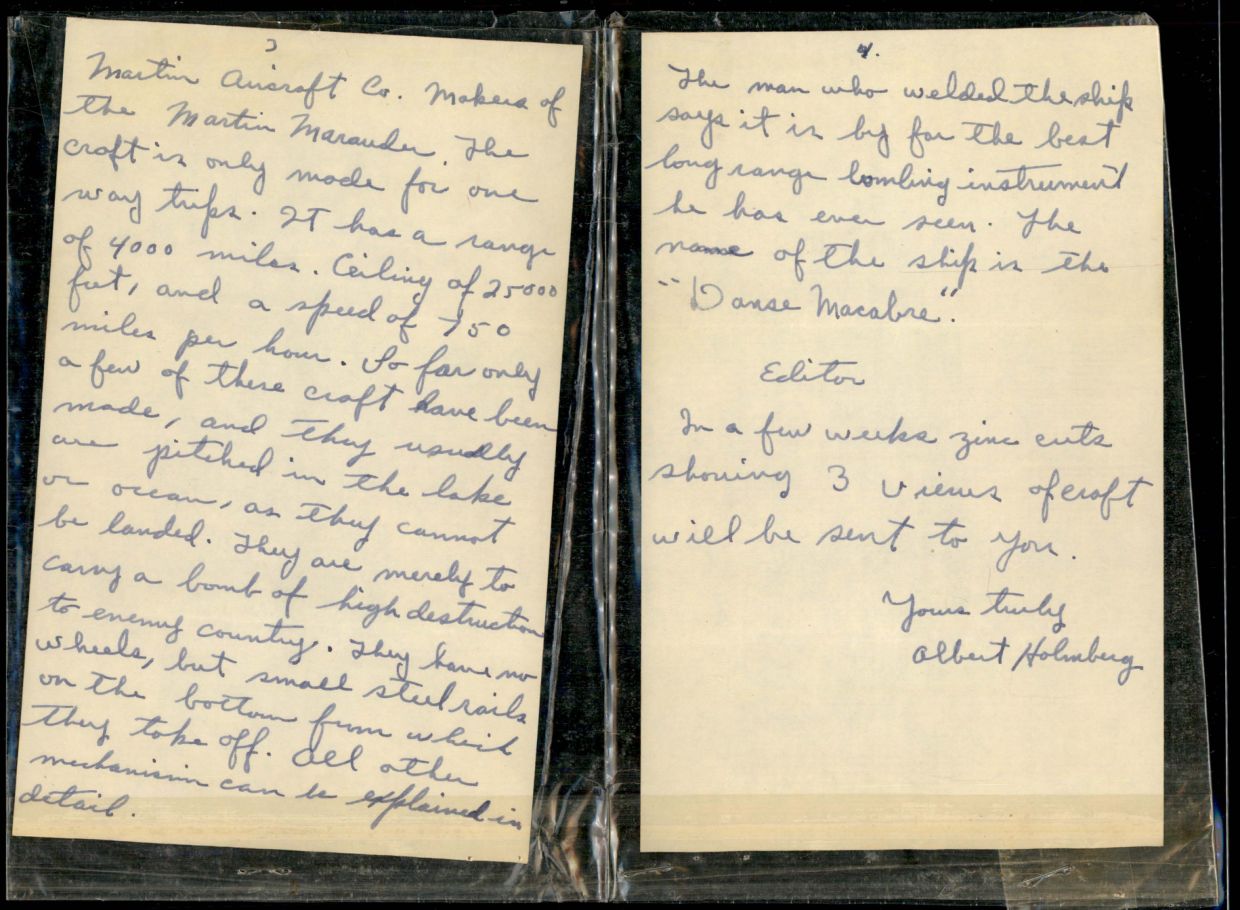 3
Martin Aircraft Co. Makers of
the Martin Marauder. The
craft is only made for one
way trips. It has a range
of 4000 miles. Ceiling of 25000
feet, and a speed of 750
miles per hour. So far only
a few of these craft have been
made, and they usually
are pitched in the lake
or ocean, as they cannot
be landed. They are merely to
carry a bomb of high destruction
to enemy country. They have no
wheels, but small steel rails
on the bottom from which
they take off. All other
mechanism can be explained in
detail.
4.
The man who welded the ship
says it is by far the best
long range bombing instrument
he has ever seen. The
name of the ship is the
"Danse Macabre".
Editor
In a few weeks zinc cuts
showing 3 views of craft
will be sent to you.
Yours truly
Albert Holmberg